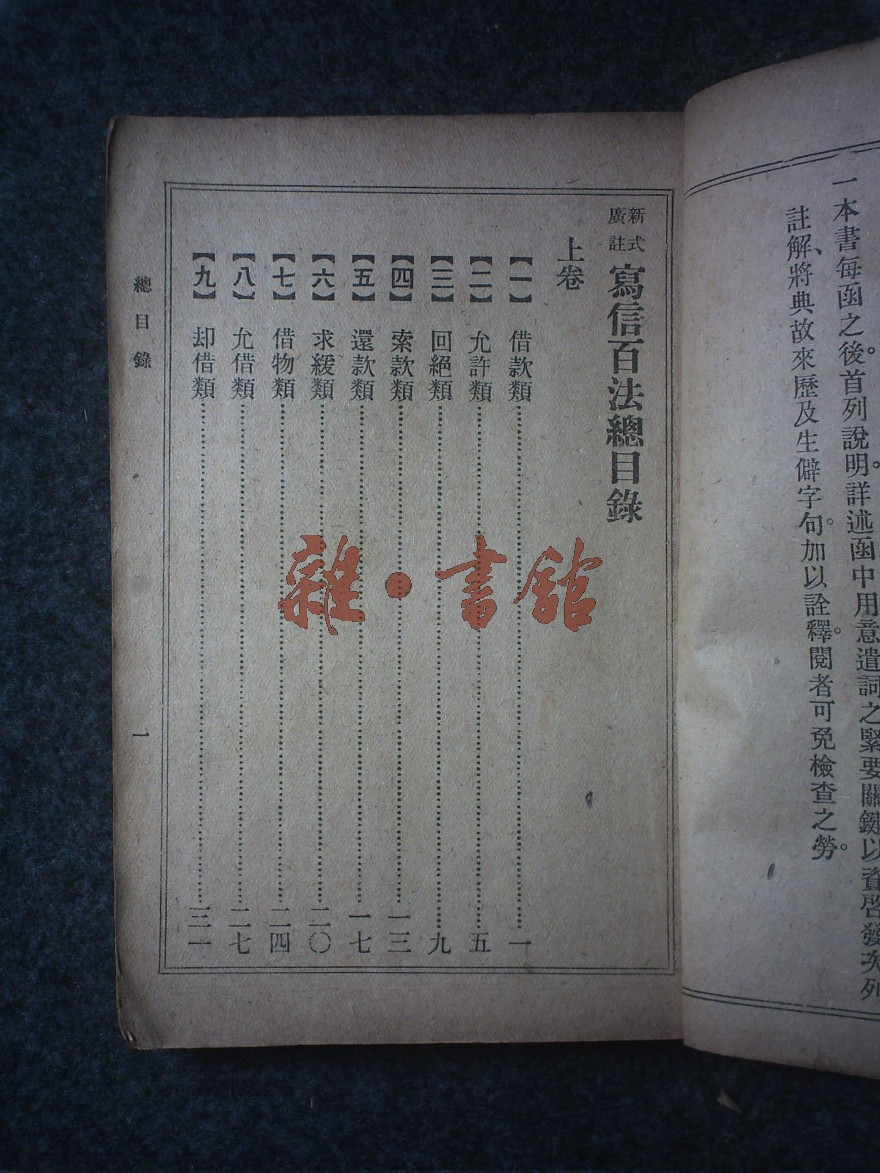 一本書每函之後。首列說明。詳述函中用意遣詞之緊要關鍵以資啓發次列
註解、將典故來歷及生僻字句。加以詮釋。閱者可免檢查之勞。
新式
廣註
寫信百法總目錄
上卷
【一】 借款類 一
【二】 允許類 五
【三】 回絕類 九
【四】 索款類 一三
【五】 還款類 一七
【六】 求緩類 二〇
【七】 借物類 二四
【八】 允借類 二七
【九】 却借類 三一
總目錄
一
雜·書館